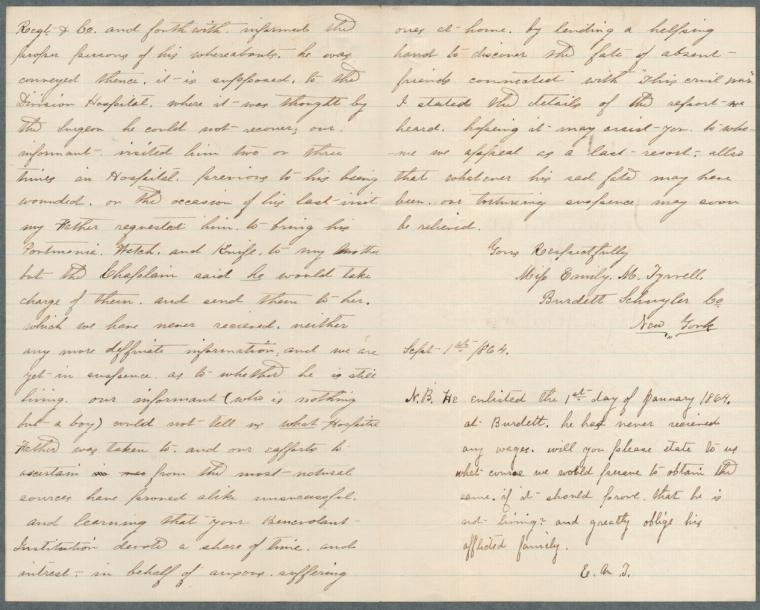 Regt & Co. and forthwith informed the
proper persons of his whereabouts. he was
conveyed thence. it is supposed. to the
Division Hospital. where it was thought by
the Surgeon he could not recover, our
informant. visited him two or three
times in Hospital. previous to his being
wounded. on the occasion of his last visit
my Father requested him. to bring his
Portmonia. Watch. and Knife. to my Mother
but the Chaplain said he would take
charge of them. and send them to her.
which we have never recieved. neither
any more deffinate information, and we are
yet in suspence. as to whether he is still
living. our informant (who is nothing
but a boy) could not tell us what Hospital
Father was taken to. and our efforts to
ascertain from the most natural
sources have proved alike unsuccessful.
and learning that your Benevolant
Institution devote a share of time. and
intrest. in behalf of anxous. suffering
ones at home. by lending a helping
hand to discover the fate of absent
friends connected with "this cruil war"
I stated the details of the report we
heard. hopeing it may assist you. to who-
me we appeal as a last resort; allso
that whatever his sad fate may have
been. our torturing suspence may soon
be relieved.
Yours Respectfully
Miss Emily. M. Tyrrell.
Burdett Schuyler Co.
New York
Sept 1st 1864.
N.B. He enlisted the 1st day of January 1864.
at Burdett. he has never recieved
any wages. will you please state to us
what course we would persue to obtain the
same. if it should prove. that he is
not living; and greatly oblige his
afflicted family.
E. M. T.